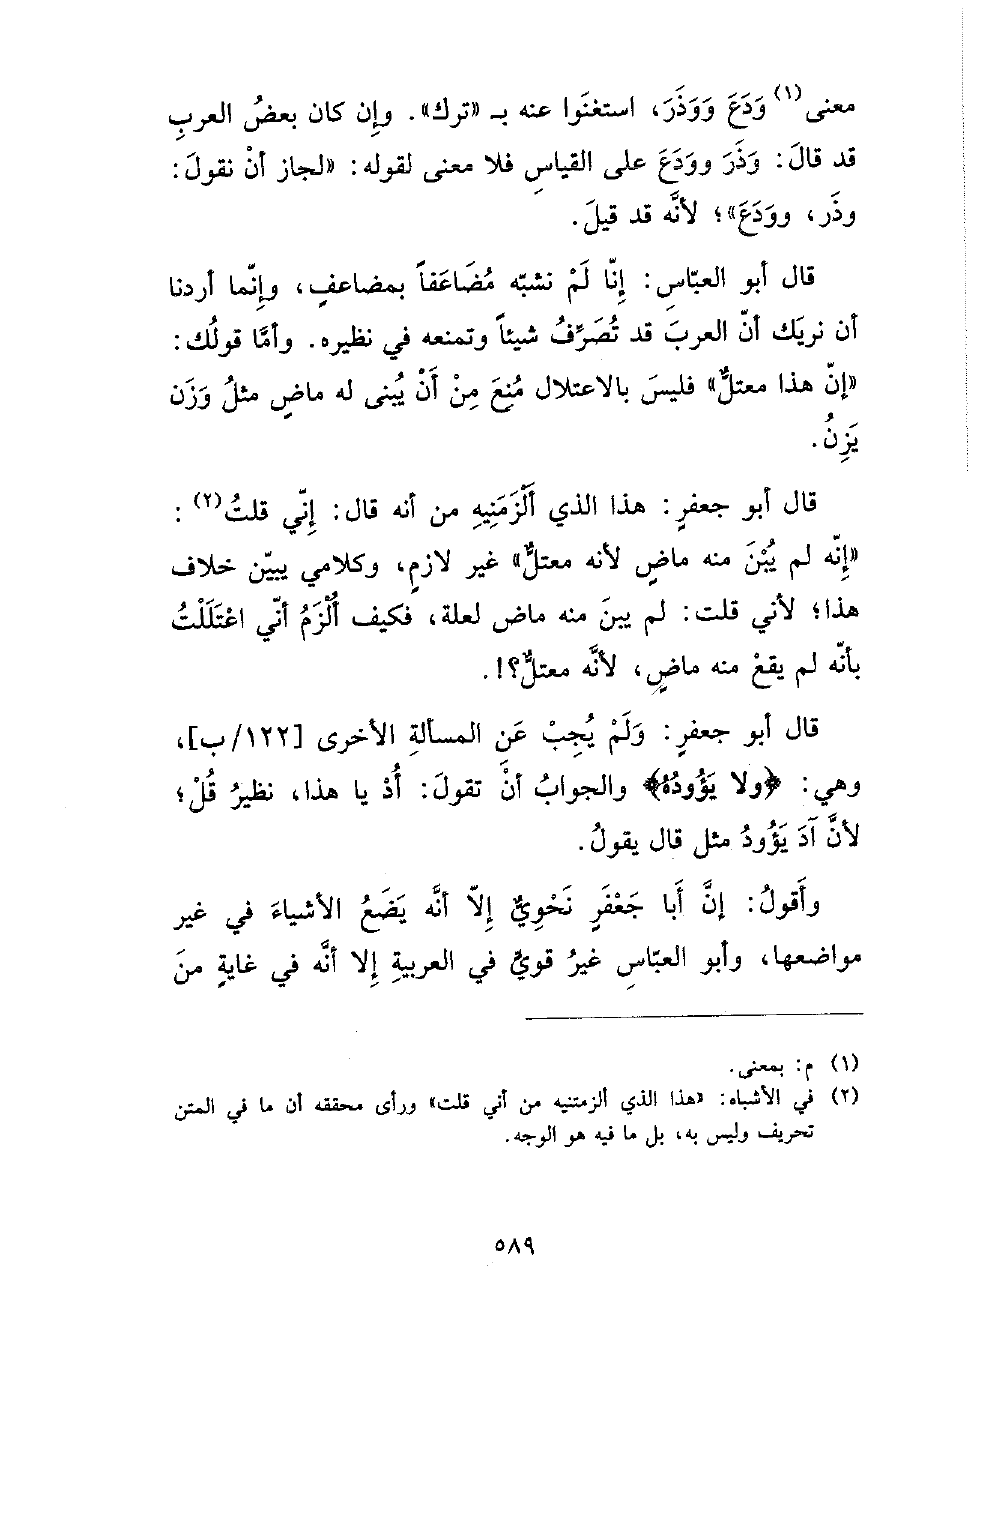 معنى(١) وَدَعَ وَوَذَرَ، استغنَوا عنه بـ «ترك». وإِن كان بعضُ العربِ
قد قالَ: وَذَرَ وودَعَ على القياسِ فلا معنى لقوله: «لجاز أنْ نقولَ:
وذَر، وودَعَ»؛ لأنَّه قد قيلَ.
قال أبو العبّاسِ: إِنّا لَمْ نشبّه مُضَاعَفاً بمضاعفٍ، وإِنّما أردنا
أن نريَك أنّ العربَ قد تُصَرِّفُ شيئاً وتمنعه في نظيره. وأمَّا قولُك:
«إنّ هذا معتلٌّ» فليسَ بالاعتلال مُنِعَ مِنْ أَنْ يُبنى له ماضٍ مثلُ وَزَن
يَزِنُ.
قال أبو جعفرٍ: هذا الذي أَلْزَمَنِيهِ من أنه قال: إِنّي قلتُ(٢):
«إِنّه لم يُبْنَ منه ماضٍ لأنه معتلٌّ» غير لازمٍ، وكلامي يبيّن خلاف
هذا؛ لأني قلت: لم يبنَ منه ماض لعلة، فكيف أُلْزَمُ أنّي اعْتَلَلْتُ
بأنّه لم يقعْ منه ماضٍ، لأنَّه معتلٌّ؟!.
قال أبو جعفرٍ: وَلَمْ يُجِبْ عَنِ المسألةِ الأخرى [١٢٢/ب]،
وهي: ﴿ولا يَؤُودُهُ﴾ والجوابُ أنْ تقولَ: أُدْ يا هذا، نظيرُ قُلْ؛
لأنَّ آدَ يَؤُودُ مثل قال يقولُ.
وأَقولُ: إنَّ أَبا جَعْفَرٍ نَحْوِيٌّ إِلاّ أنَّه يَضَعُ الأشياءَ في غير
مواضعها، وأبو العبّاسِ غيرُ قويٍّ في العربيةِ إِلا أنَّه في غايةٍ منَ
(١) م: بمعنى.
(٢) في الأشباه: «هذا الذي ألزمتنيه من أني قلت» ورأى محققه أن ما في المتن
تحريف وليس به، بل ما فيه هو الوجه.
٥٨٩